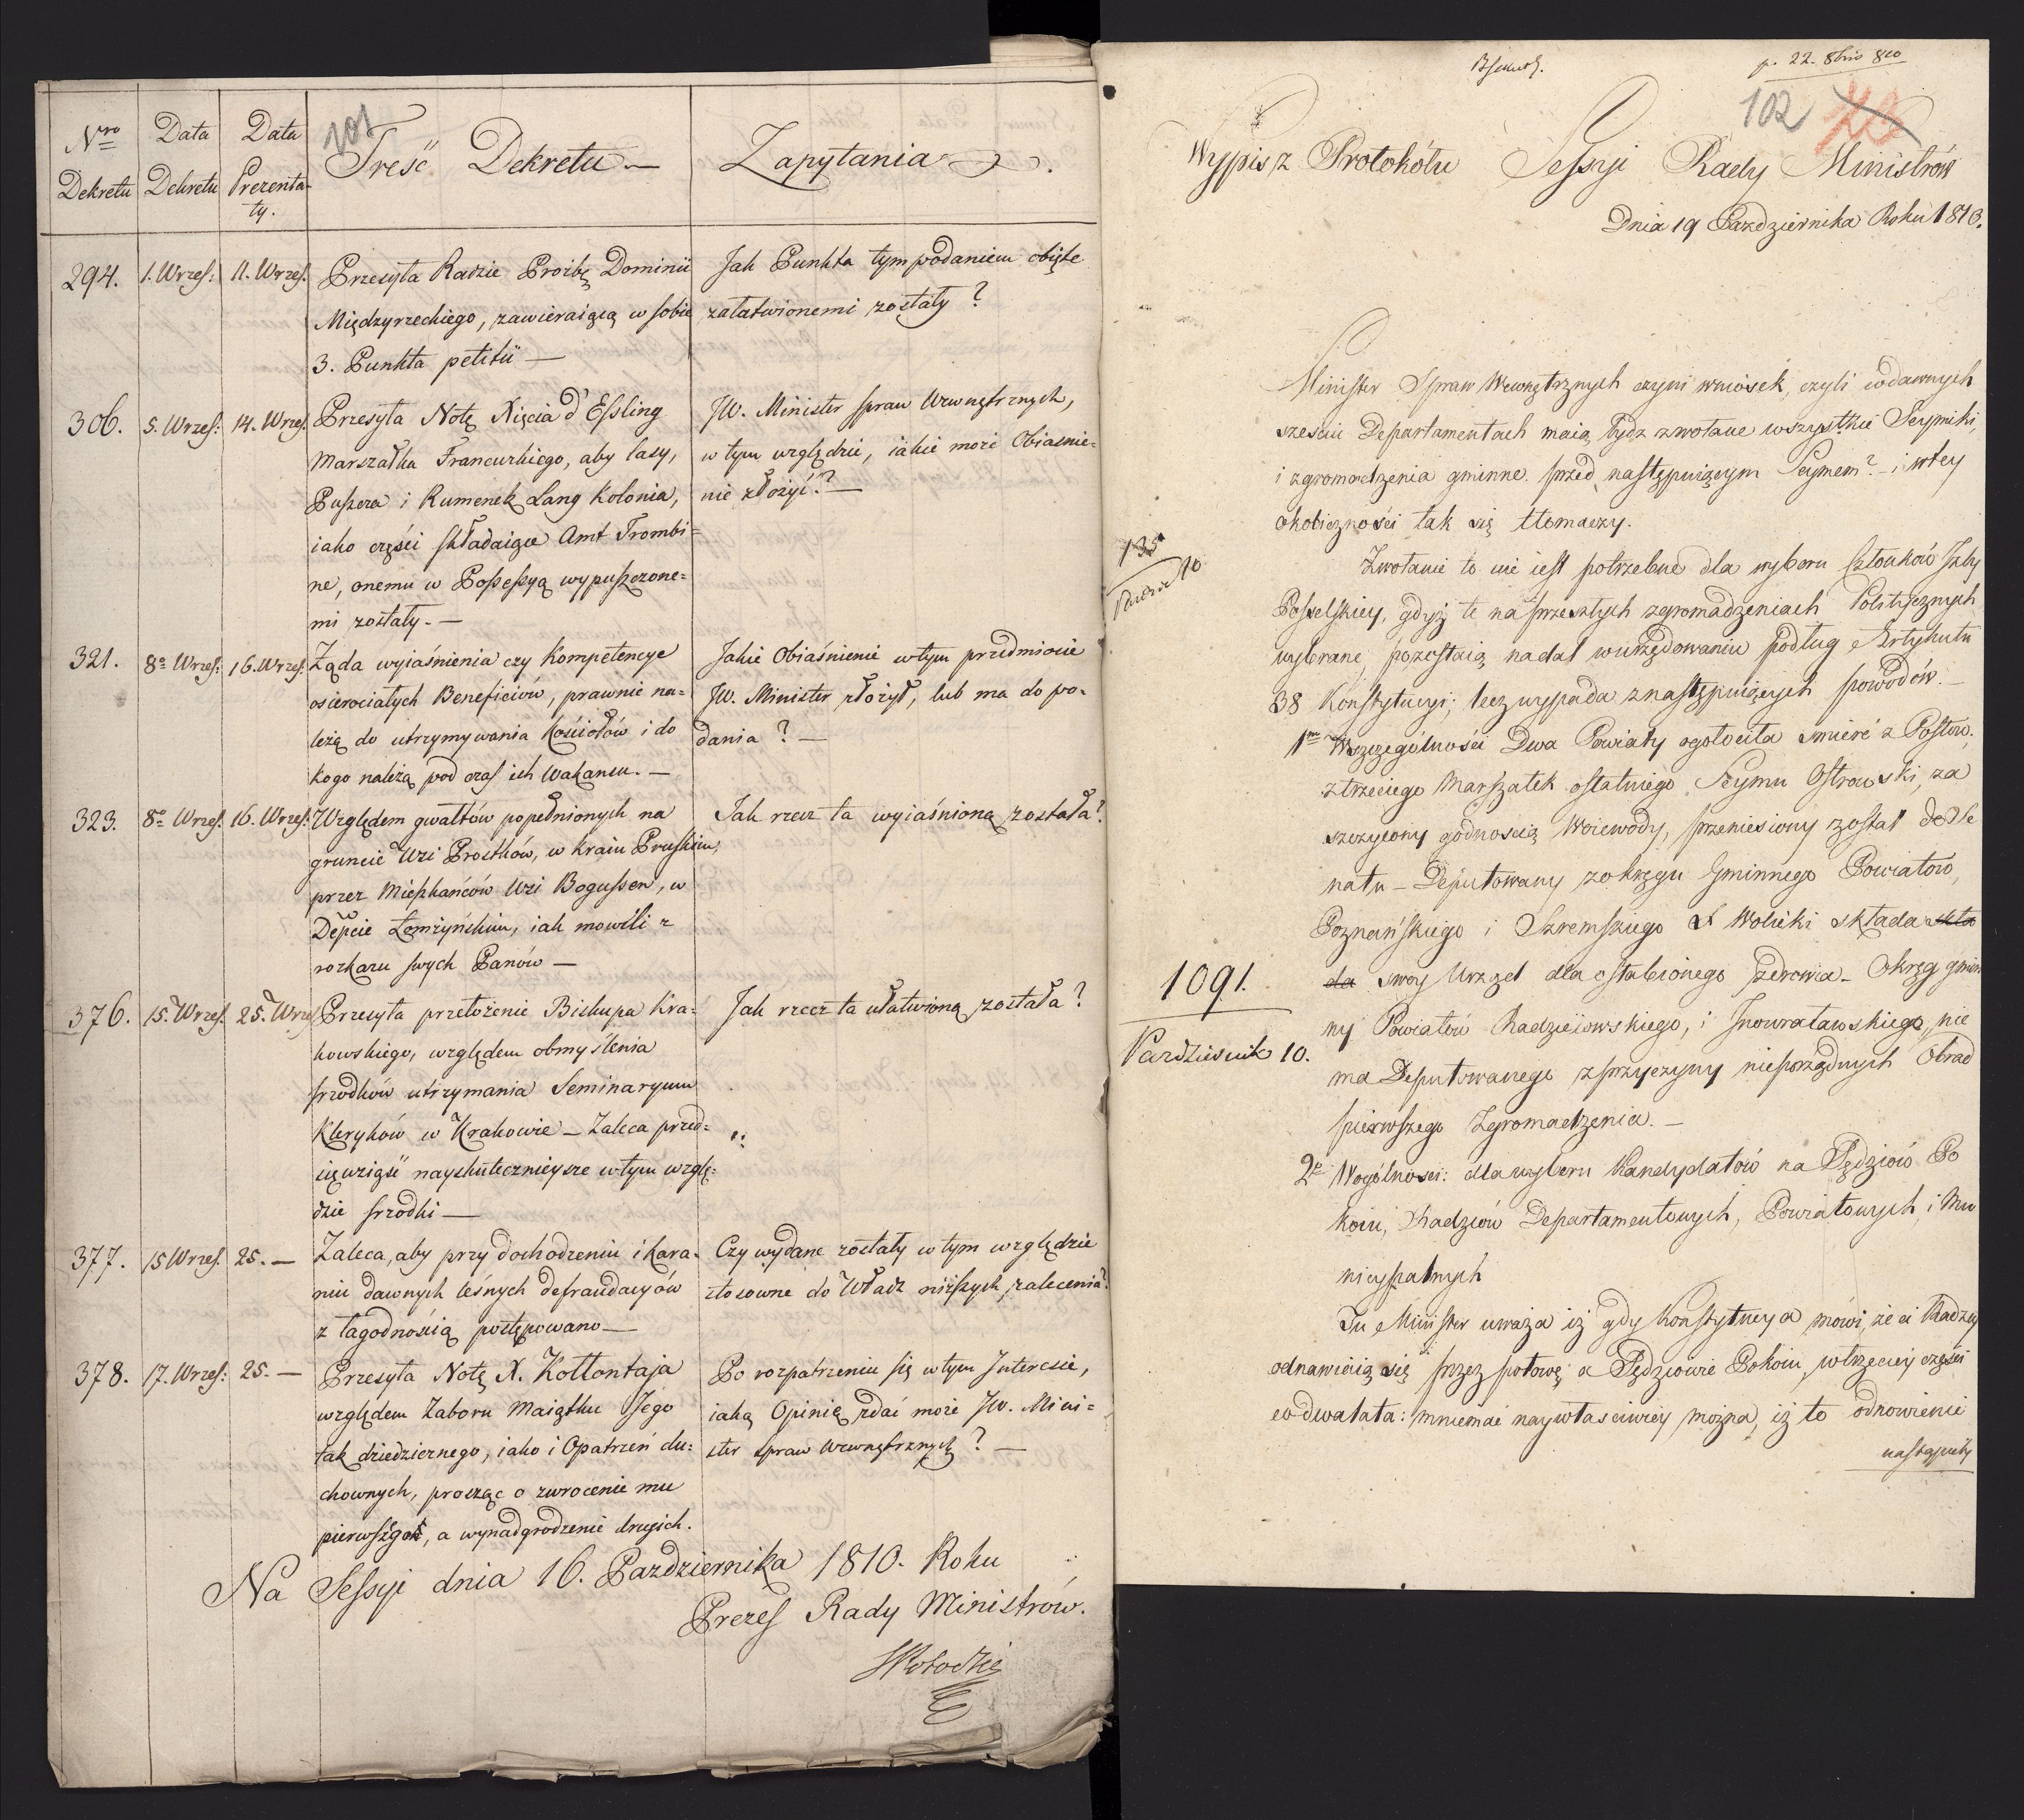 101
Nro Dekretu
Data Dekretu
Data Prezenta-
ty.
Treść Dekretu —
Zapytania
294. 1. Wrześ: 11. Wrześ.
Przesyła Radzie Proźbę Dominii
Międzyrzeckiego, zawieraiącą w sobie
3. Punkta petitii —
Jak Punkta tym podaniem obięte
załatwionemi zostały?
306. 5. Wrześ: 14. Wrześ.
Przesyła Notę Xięcia d'Essling
Marszałka Francuzkiego, aby lasy,
Puszcza i Rumenek Lang Kolonia,
iako części składaiące Amt Trombi=
ne, onemu w Possessyą wypuszczone=
mi zostały. —
JW. Minister spraw Wewnętrznych,
w tym względzie, iakie może Obiaśnie=
nie złożyć? —
321. 8o Wrześ: 16. Wrześ.
Żąda wyiaśnienia czy Kompetencye
osierociałych Beneficiów, prawnie na=
leżą do utrzymywania Kościołów i do
kogo należą pod czas ich Wakansu. —
Jakie Obiaśnienie w tym przedmiocie
JW. Minister złożył, lub ma do po=
dania? —
323. 8o Wrześ. 16. Wrześ:
Względem gwałtów popełnionych na
gruncie Wsi Prostków, w kraiu Pruskim,
przez Mieszkańców Wsi Bogussen, w
Depcie Łomżyńskim, iak mowili z
rozkazu swych Panów —
Jak rzecz ta wyiaśnioną została?
376. 15. Wrześ. 25. Wrześ
Przesyła przełożenie Biskupa Kra=
kowskiego, względem obmyślenia
srzodków utrzymania Seminaryum
Kleryków w Krakowie — Zaleca przed=
sięwziąść nayskutecznieysze w tym wzglę=
dzie srzodki —
Jak rzecz ta ułatwioną została?
377. 15 Wrześ. 25. —
Zaleca, aby przy dochodzeniu i kara=
niu dawnych leśnych defraudacyów
z łagodnością postępowano —
Czy wydane zostały w tym względzie
stosowne do Władz niższych zalecenia?
378. 17. Wrześ: 25. —
Przesyła Notę X. Kołłontaja
względem Zaboru Maiątku Jego
tak dziedzicznego, iako i Opatrzeń du=
chownych, prosząc o zwrocenie mu
pierwszego, a wynadgrodzenie drugich.
Po rozpatrzeniu się w tym Interesie,
iaką Opinię zdać może JW. Mini=
ster spraw Wewnętrznych? —
Na Sessyi dnia 16. Pazdziernika 1810. Roku
Prezes Rady Ministrów.
p. 22. 8bris 810
102
Wypis z Protokółu Sessyi Rady Ministrów
Dnia 19 Pazdziernika Roku 1810.
Minister Spraw Wewnętrznych czyni wniosek, czyli w dawnych
sześciu Departamentach maią bydz zwołane wszystkie Seymiki,
i zgromadzenia gminne przed następuiącym Seymem? — i w tey
okoliczności tak się tłomaczy.
Zwołanie to nie iest potrzebne dla wyboru Członków Izby
Poselskiey, gdyż te na przeszłych zgromadzeniach Politycznych
wybrane, pozostaią nadal w urzędowaniu podług Artykułu
38 Konstytucyi; lecz wypada z następuiących powodów. —
1mo W szczególności Dwa Powiaty ogołociła smierć z Posłów,
z trzeciego Marszałek ostatniego Seymu Ostrowski, za
szczycony godnością Woiewody, przeniesiony został do Se
natu — Deputowany z okręgu Gminnego Powiatów,
Poznańskiego i Szremskiego Wolicki składa skła
da swoy Urząd dla osłabionego zdrowia — Okręg gmin
ny Powiatów Radzieiowskiego, i Inowrataw­skiego, nie
ma Deputowanego z przyczyny nieporządnych Obrad
pierwszego Zgromadzenia. —
135
10
1091.
Pazdziernik 10.
2o W ogólności: dla wyboru Kandydatów na Sędziów Po
koiu, Radziów Departamentowych, Powiatowych, i Mu
nicypalnych
Tu Minister uważa iż gdy Konstytucya mówi, że ci Radzcy
odnawiaią się przez połowę, a Sędziowie Pokoiu w trzeciey części
co dwa lata: mniemać naywłasciwiey można, iż to odnowienie
nastąpiły